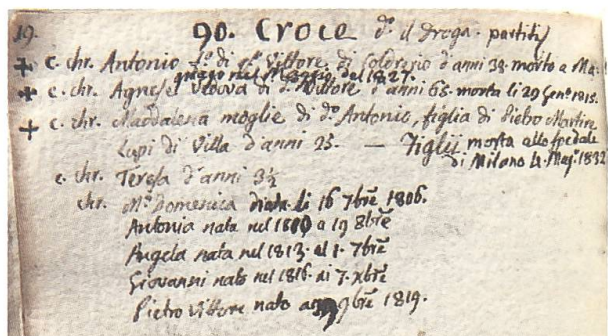 19. 90. Croce d.º il Droga. partiti
+ c. chr. Antonio f.º di q.m Vittore di Soldregio d'anni 38. morto a Ma-
gnago nel Maggio del 1827.
+ c. chr. Agnese Vedova di d.º Vittore d'anni 65. morta li 29 Gen.º 1815.
+ c. chr. Maddalena moglie di d.º Antonio, figlia di Pietro Martire
Lupi di Villa d'anni 25. — Figlij morta allo Spedale
di Milano 4. Mag. 1832
c. chr. Teresa d'anni 3½
chr. M.ª Domenica nata li 16 7bre 1806.
Antonia nata nel 1810 a 19 8bre
Angela nata nel 1813. al 1. 7bre
Giovanni nato nel 1816. ai 7. Xbre
Pietro Vittore nato 9bre 1819.